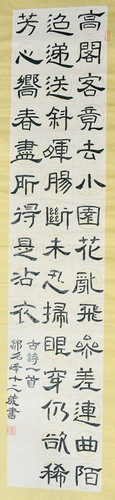 高閣客竟去小園花亂飛參差連曲陌
迢遞送斜暉腸斷未忍掃眼穿仍欲稀
芳心嚮春盡所得是沾衣
古詩一首
名峰十二歲書